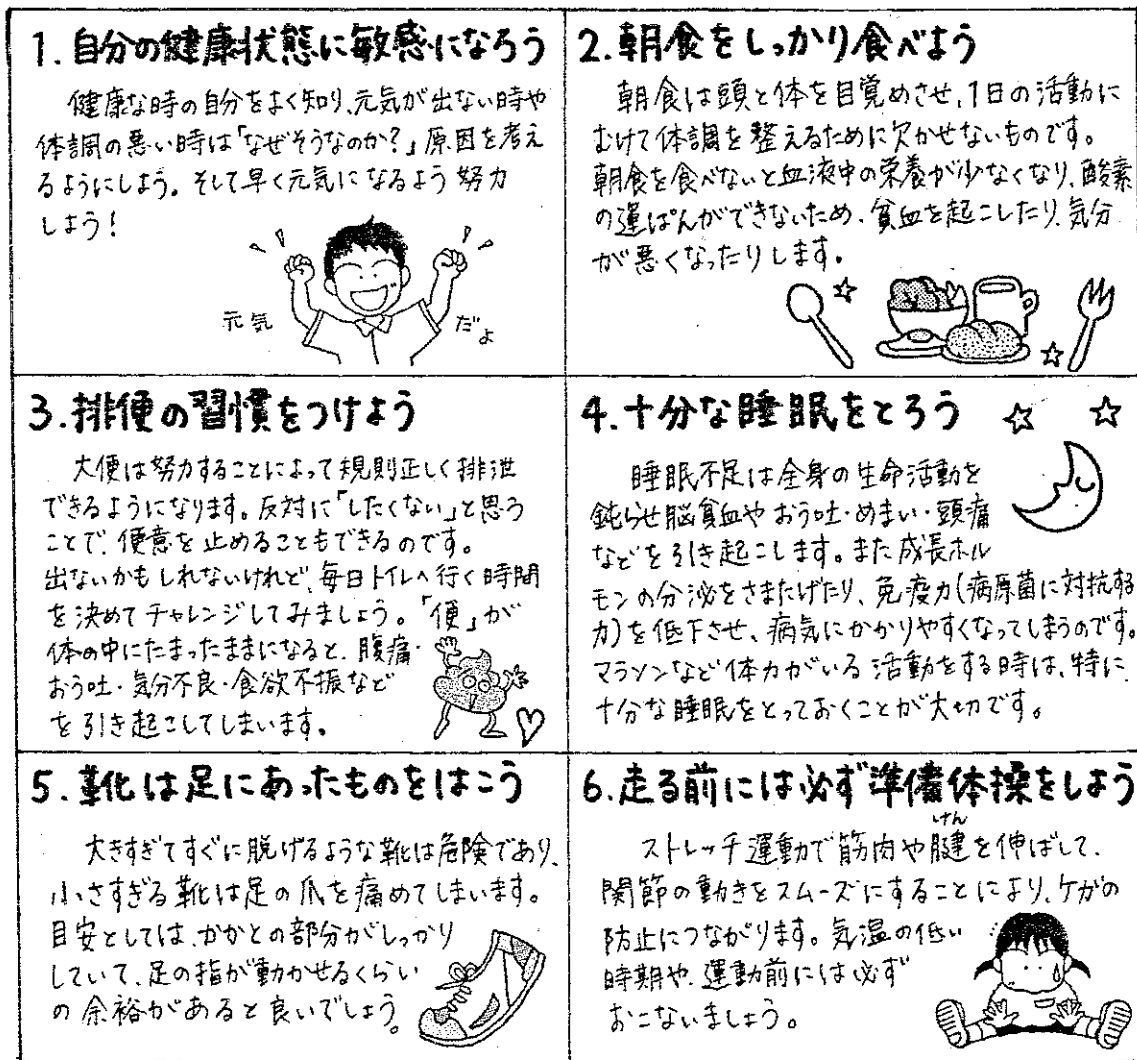 1.自分の健康状態に敏感になろう
健康な時の自分をよく知り、元気が出ない時や
体調の悪い時は「なぜそうなのか?」原因を考え
るようにしよう。そして早く元気になるよう努力
しよう!
元気
だよ
2.朝食をしっかり食べよう
朝食は頭と体を目覚めさせ、1日の活動に
むけて体調を整えるために欠かせないものです。
朝食を食べないと血液中の栄養が少なくなり、酸素
の運ぱんができないため、貧血を起こしたり、気分
が悪くなったりします。
3.排便の習慣をつけよう
大便は努力することによって規則正しく排泄
できるようになります。反対に「したくない」と思う
ことで、便意を止めることもできるのです。
出ないかもしれないけれど、毎日トイレへ行く時間
を決めてチャレンジしてみましょう。「便」が
体の中にたまったままになると、腹痛・
おう吐・気分不良・食欲不振など
を引き起こしてしまいます。
4.十分な睡眠をとろう
睡眠不足は全身の生命活動を
鈍らせ脳貧血や おう吐・めまい・頭痛
などを引き起こします。また成長ホル
モンの分泌をさまたげたり、免疫力(病原菌に対抗する
力)を低下させ、病気にかかりやすくなってしまうのです。
マラソンなど体力がいる活動をする時は、特に
十分な睡眠をとっておくことが大切です。
5.靴は足にあったものをはこう
大きすぎてすぐに脱げるような靴は危険であり、
小さすぎる靴は足の爪を痛めてしまいます。
目安としては、かかとの部分がしっかり
していて、足の指が動かせるくらい
の余裕があると良いでしょう。
6.走る前には必ず準備体操をしよう
けん
ストレッチ運動で筋肉や腱を伸ばして、
関節の動きをスムーズにすることにより、ケガの
防止につながります。気温の低い
時期や、運動前には必ず
おこないましょう。